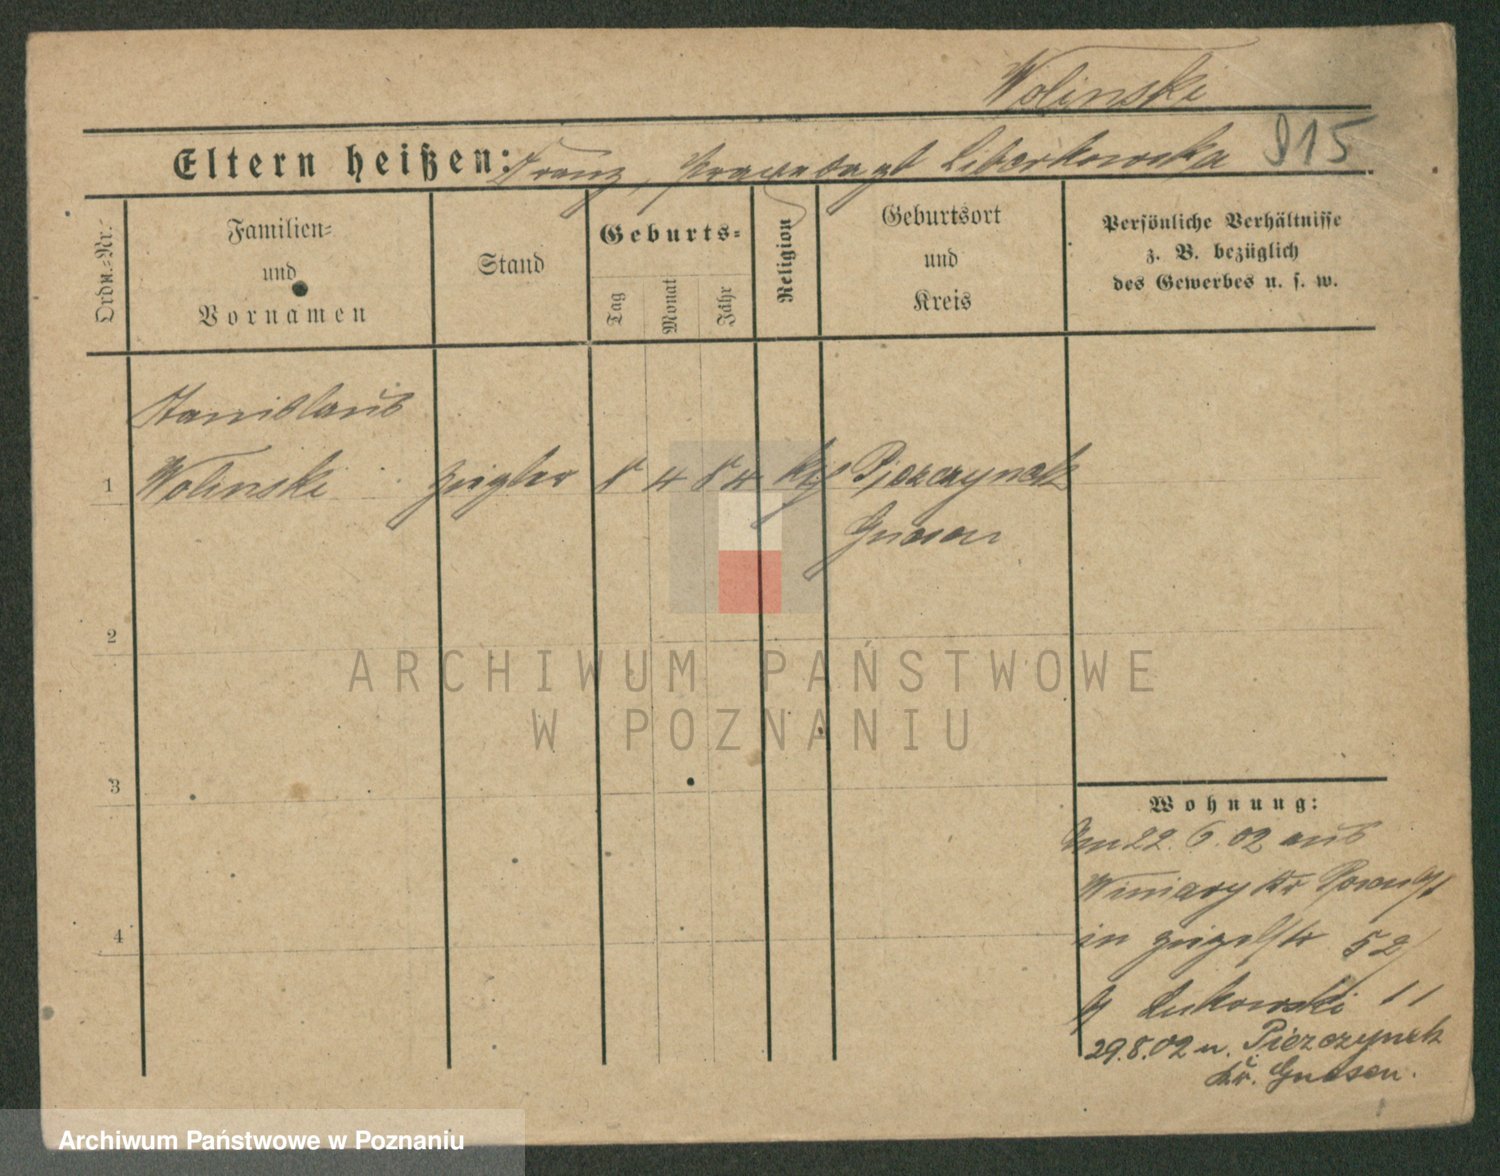 Wolinski
Eltern heißen: Franz, Liberkowska 915
Ordn.-Nr.
Familien-
und
Vornamen
Stand
Geburts-
Tag
Monat
Jahr
Religion
Geburtsort
und
Kreis
Persönliche Verhältnisse
z. B. bezüglich
des Gewerbes u. s. w.
Stanislaus
1 Wolinski Ziegler 8 4 84 Kath Pierzcynek
Gnesen
2
ARCHIWUM PAŃSTWOWE
W POZNANIU
3
Wohnung:
22. 6. 02 aus
Winiary Kr
4
in 52/
Lukowski 11
29.8.02 n. Pierzcynek
Kr. Gnesen.
Archiwum Państwowe w Poznaniu